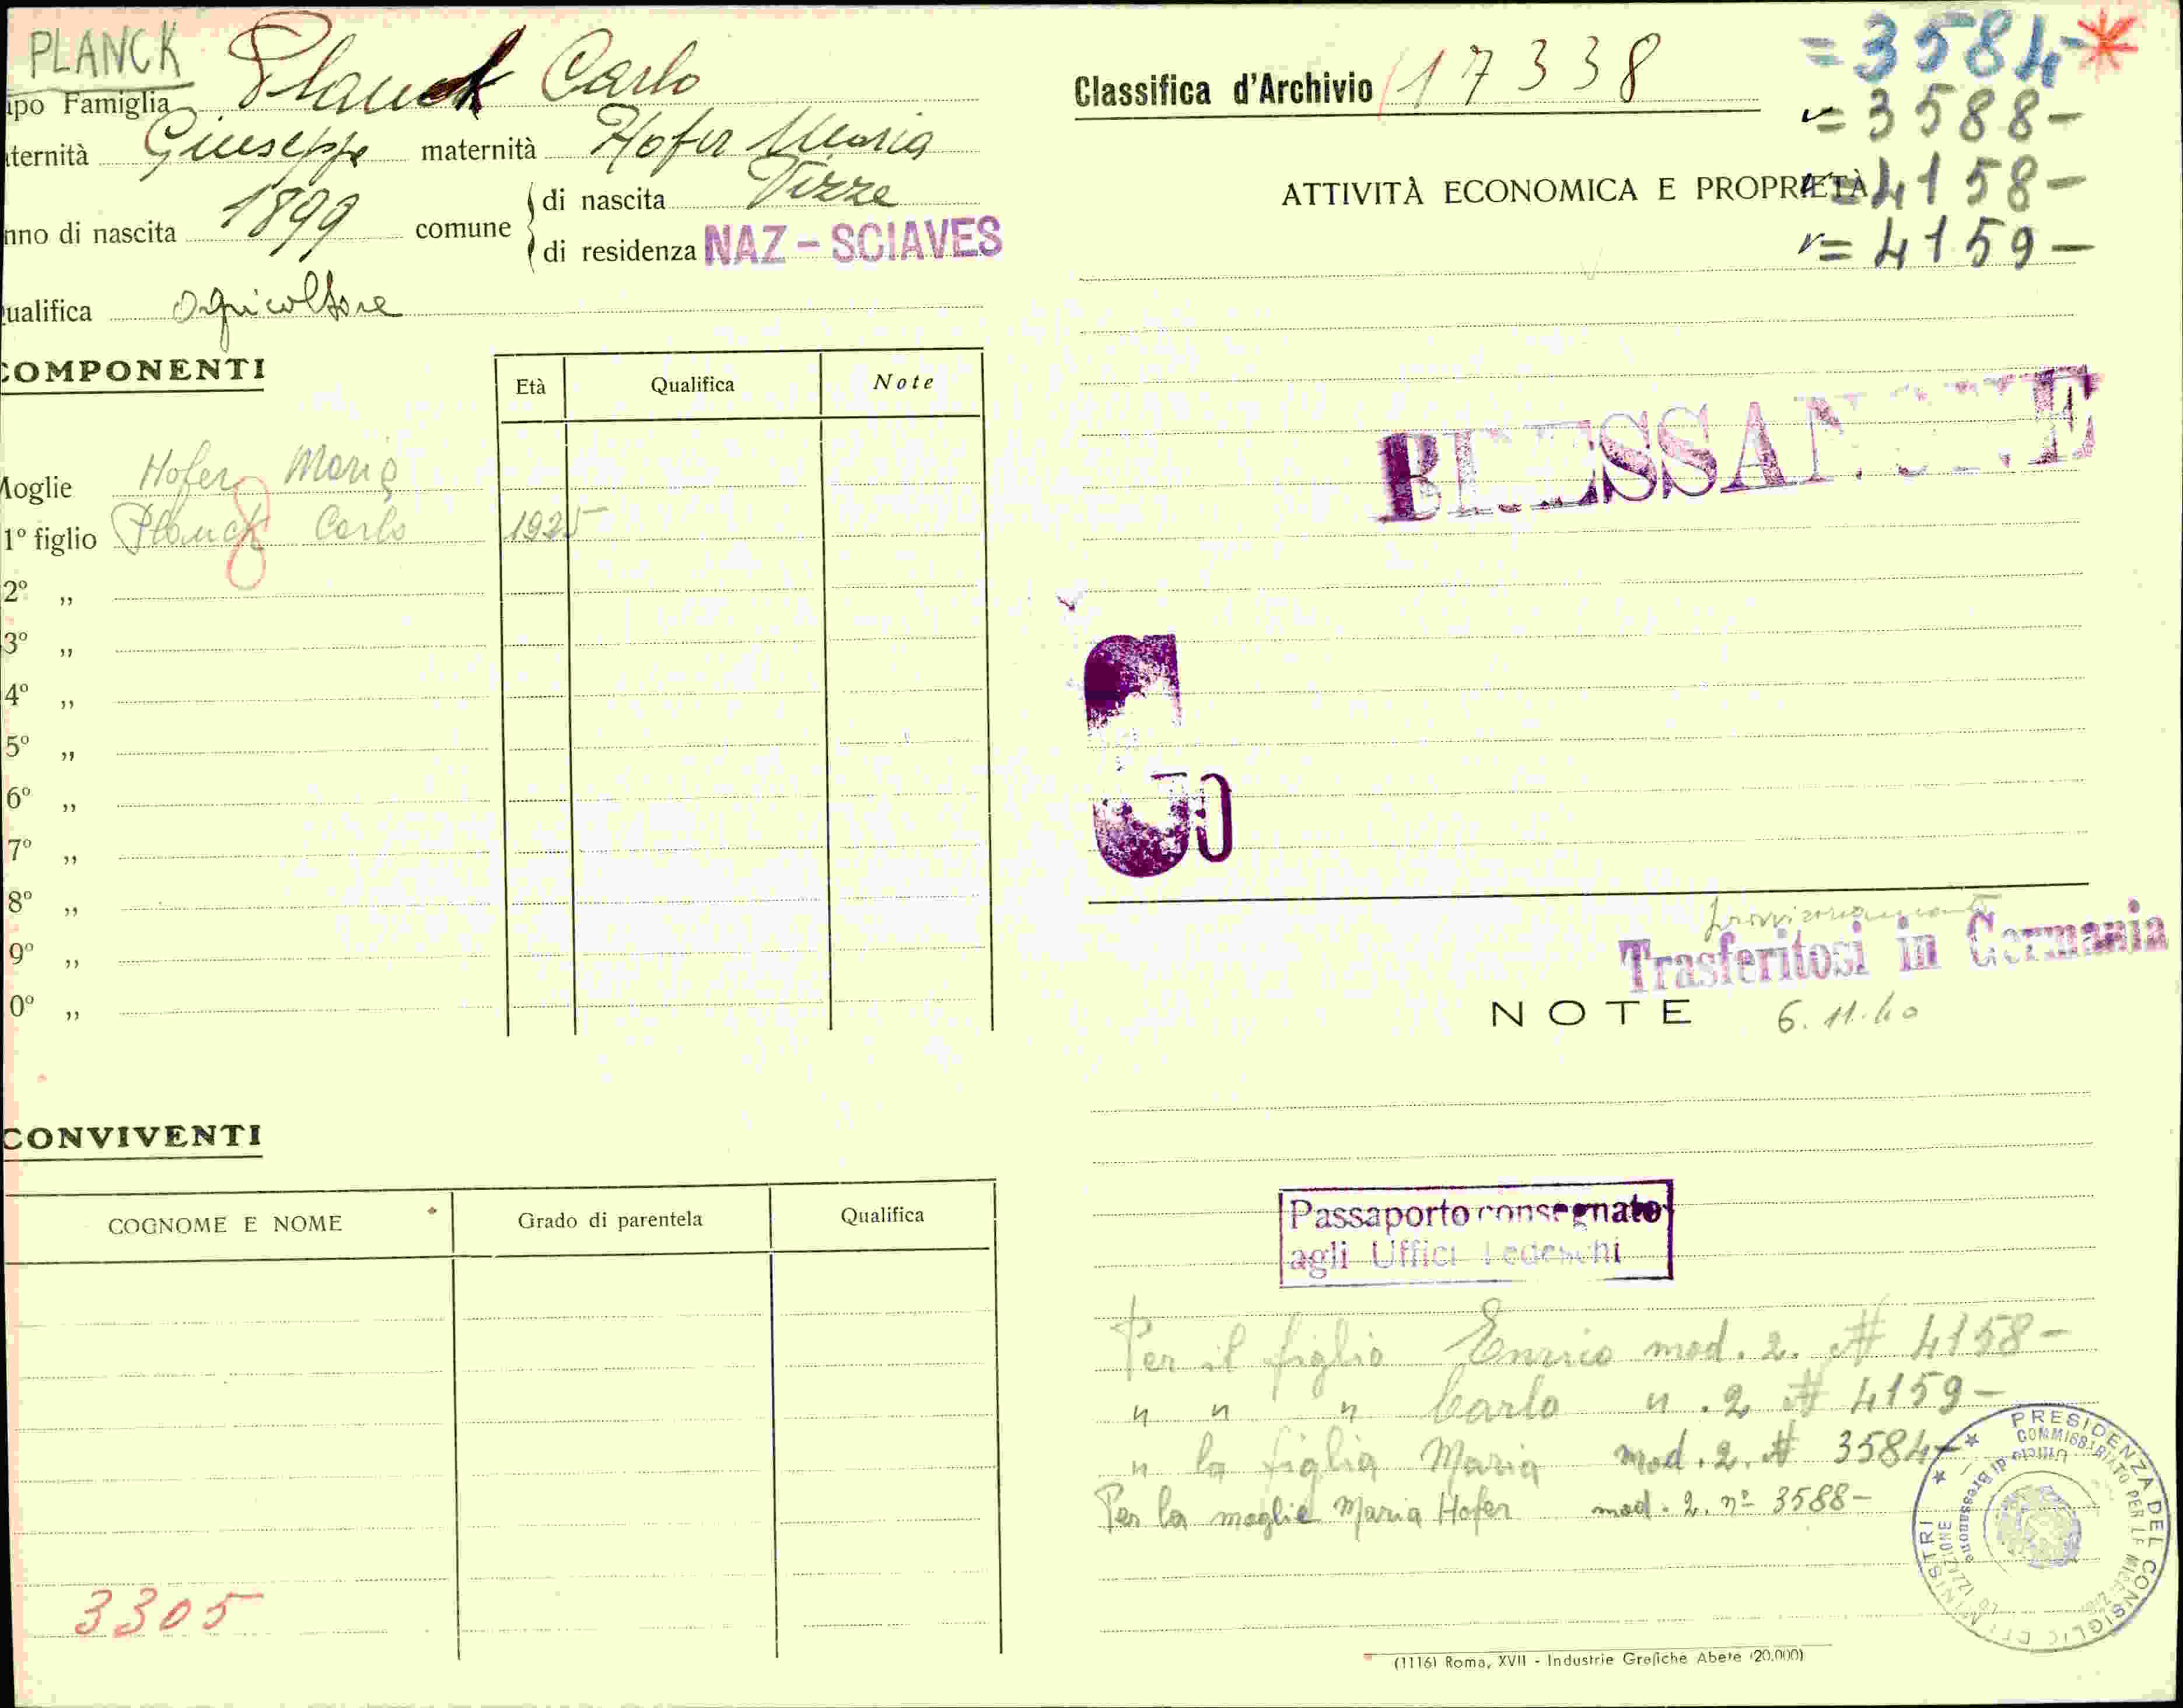 PLANCK
apo Famiglia Planck Carlo
aternità Giuseppe maternità Hofer Maria
nno di nascita 1899 comune
di nascita Vizze
di residenza NAZ - SCIAVES
ualifica agricoltore
COMPONENTI
Età Qualifica Note
Moglie Hofer Maria
1º figlio Planck Carlo 1925
2º „
3º „
4º „
5º „
6º „
7º „
8º „
9º „
0º „
CONVIVENTI
COGNOME E NOME Grado di parentela Qualifica
3305
Classifica d'Archivio 17338
= 3584 *
= 3588 -
= 4158 -
= 4159 -
ATTIVITÀ ECONOMICA E PROPRIETÀ
BRESSANONE
G
provvisoriamente
Trasferitosi in Germania
NOTE 6.11.40
Passaporto consegnato
agli Uffici Tedeschi
Per il figlio Enrico mod. 2. # 4158-
" " " Carlo " . 2 # 4159-
" la figlia Maria mod. 2. # 3584-
Per la moglie Maria Hofer mod. 2. nº 3588-
PRESIDENZA DEL CONSIGLIO DEI MINISTRI
COMMISSARIATO PER LE
Ufficio di Bressanone
(1116) Roma, XVII - Industrie Grafiche Abete (20.000)